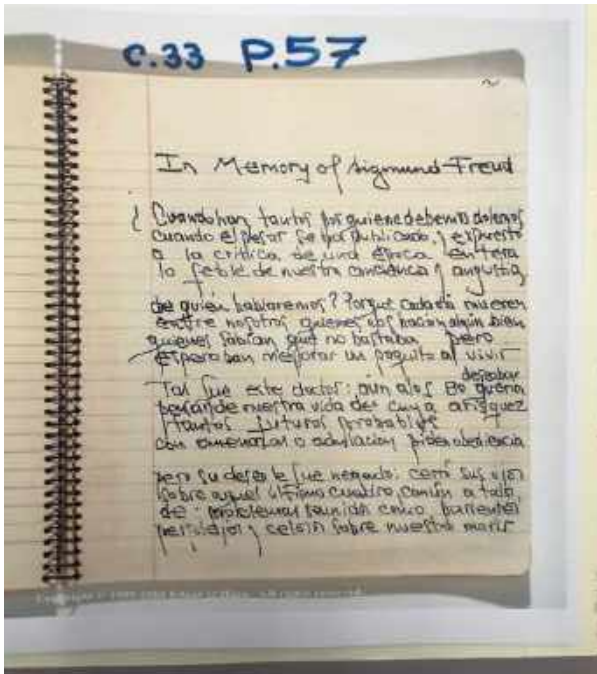 C.33 P.57
In Memory of Sigmund Freud
¿ Cuando han tantos por quienes debemos dolernos
cuando el pesar se ha publicado, y expuesto
a la crítica de una época entera
lo feble de nuestra conciencia y angustia,
de quién hablaremos? Porque cada día mueren
entre nosotros quienes nos hacían algún bien
quienes sabían que no bastaba pero
esperaban mejorar un poquito al vivir
Tal fue este doctor: aun a los 80 quería
deseaba
pensar de nuestra vida de cuya
tantos futuros probables
con amenazas o adulación piden obediencia
pero su deseo le fue negado: cerró sus ojos
sobre aquel último cuadro, común a todos,
de problemas reunidos como parientes
perplejos y celosos sobre nuestro morir